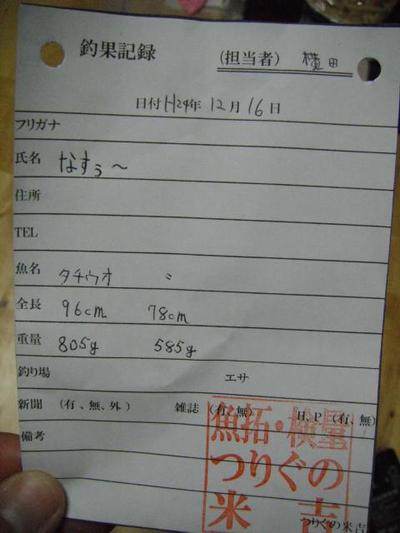 釣果記録 (担当者) 横田
日付 H24年 12月 16日
フリガナ
氏名 なすぅ~
住所
TEL
魚名 タチウオ 〃
全長 96cm 78cm
重量 805g 585g
釣り場 エサ
新聞 (有、無、外) 雑誌 (有、無) H.P (有、無)
備考
魚拓・検量
つりぐの
米吉
つりぐの米吉